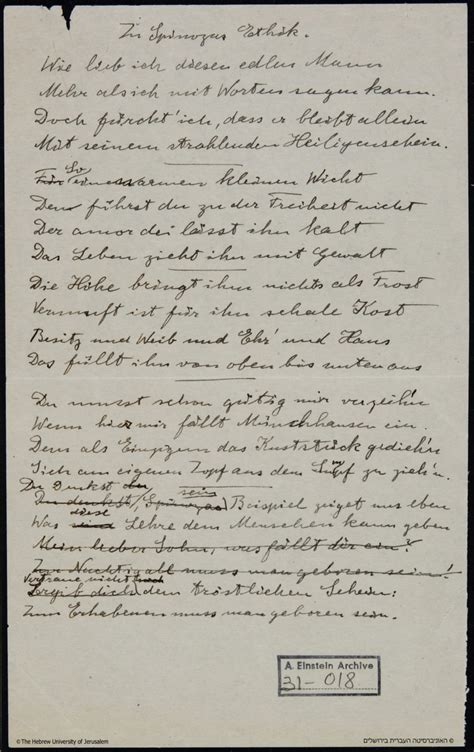 Zu Spinozas Ethik.
Wie lieb ich diesen edlen Mann
Mehr als ich mit Worten sagen kann.
Doch fürcht' ich, dass er bleibt allein
Mit seinem strahlenden Heiligenschein.
So
Für einen armen kleinen Wicht
Den führst du zu der Freiheit nicht
Der amor dei lässt ihn kalt
Das Leben zieht ihn mit Gewalt
Die Höhe bringt ihm nichts als Frost
Vernunft ist für ihn schale Kost
Besitz und Weib und Ehr' und Haus
Das füllt ihn von oben bis unten aus
Du musst schon gütig mir verzeih'n
Wenn hier mir fällt Münchhausen ein.
Dem als Einzigem das Kuststück gedieh'n
Sich am eigenen Zopf aus dem Sumpf zu zieh'n.
Du denkst sein
Du denkst, Spinozas Beispiel zeiget uns eben
diese
Was Lehre dem Menschen kann geben
Mein lieber Sohn, was fällt dir ein?
Zur Nachtigall muss man geboren sein!
Vertraue nicht
dem tröstlichen Schein:
Zum Erhabenen muss man geboren sein.
A. Einstein Archive
31-018
© The Hebrew University of Jerusalem
© האוניברסיטה העברית בירושלים